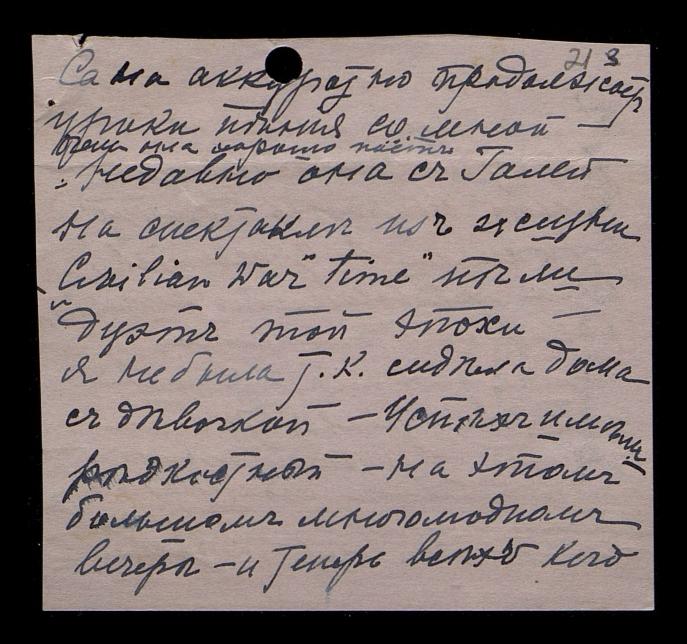 21 8
Сама аккуратно продолжает
уроки пѣнія со мной —
она хорошо поетъ
Недавно она съ Галей
на спектаклѣ изъ жизни
Civilian War "time" пѣли
дуэтъ той эпохи —
я не была т.к. сидѣла дома
съ дѣвочкой — Успѣхъ имѣли
рѣдкостный — на этомъ
большомъ многолюдномъ
вечерѣ — и теперь всѣхъ кого